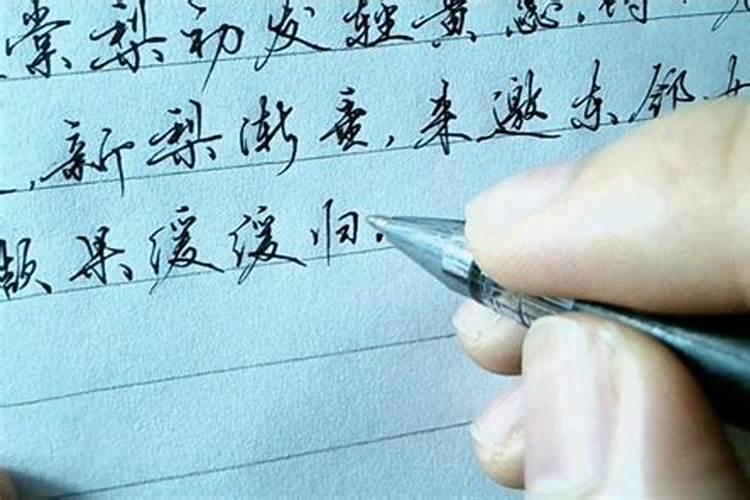 棠梨初发轻黄蕊.
,新梨渐重,来邀东邻女
果缓缓归.